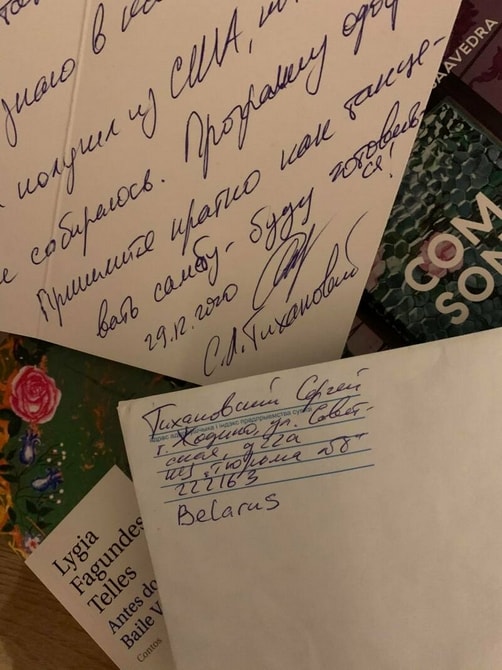 знаю в
получил из США,
не собиралось. Программу
Пришлите кратко как танце-
вать самбу - буду готовить-
ся!
29.12.2020
С.Л. Тихановский
AAVEDRA
COM
SON
Тихановский Сергей
г. Жодино, ул. Совет-
ская, д. 22а
"Тюрьма №8"
222163
Belarus
Lygia
Fagundes
Telles
Antes do
Baile V
Contos